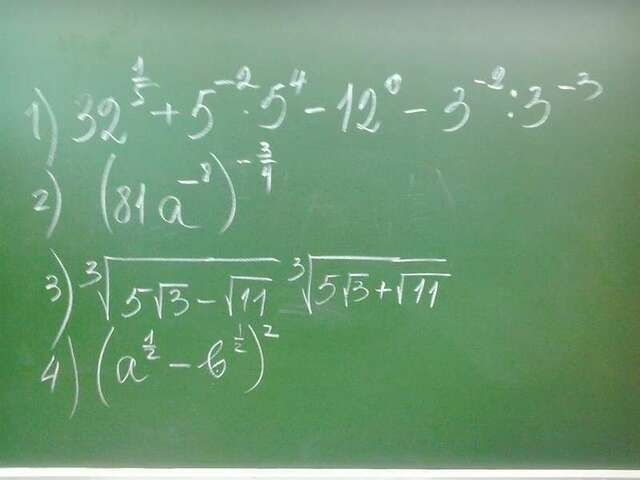 1) 32^{\frac{1}{5}} + 5^{-2} \cdot 5^{4} - 12^{0} - 3^{-2} : 3^{-3}
2) (81a^{-8})^{-\frac{3}{4}}
3) \sqrt[3]{5\sqrt{3} - \sqrt{11}} \sqrt[3]{5\sqrt{3} + \sqrt{11}}
4) (a^{\frac{1}{2}} - b^{\frac{1}{2}})^{2}